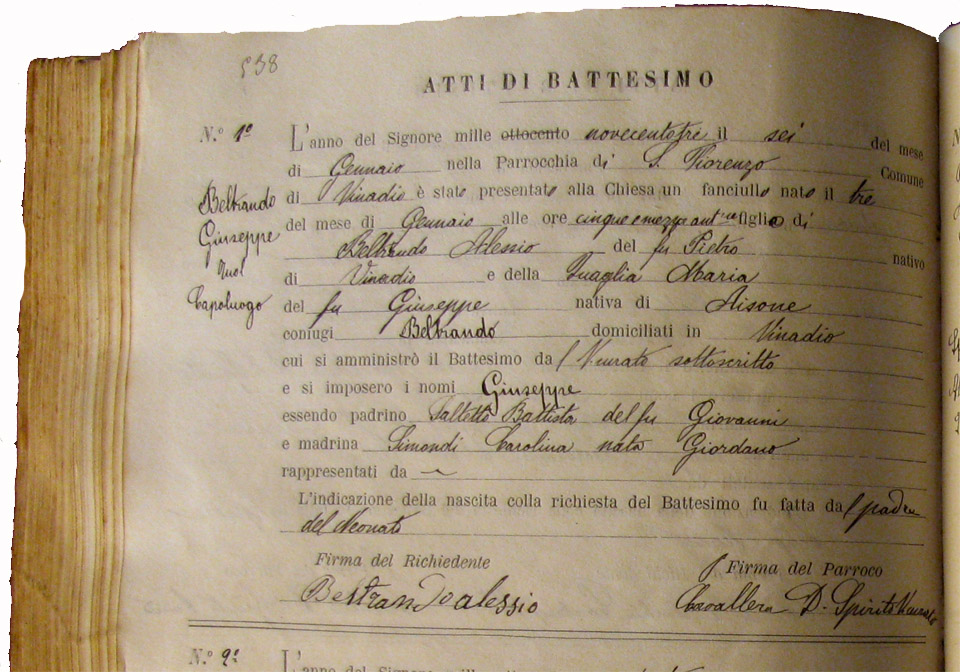 538
ATTI DI BATTESIMO
N.º 1º
L'anno del Signore mille ottocento novecentotre il sei del mese
di Gennaio nella Parrocchia di S. Fiorenzo Comune
di Vinadio è stato presentato alla Chiesa un fanciullo nato il tre
del mese di Gennaio alle ore cinque e mezzo ant.ne figlio di
Beltrando Alessio del fu Pietro nativo
di Vinadio e della Quaglia Maria
del fu Giuseppe nativa di Aisone
coniugi Beltrando domiciliati in Vinadio
cui si amministrò il Battesimo da l Vicurato sottoscritto
e si imposero i nomi Giuseppe
essendo padrino Battista del fu Giovanni
e madrina Simondi Carolina nata Giordano
rappresentati da ~
L'indicazione della nascita colla richiesta del Battesimo fu fatta da l padre
del Neonato
Beltrando
Giuseppe
Capoluogo
Firma del Richiedente
Beltrando alessio
Firma del Parroco
Cavallera D. Spirito
N.º 2º
L'anno del Signore mille